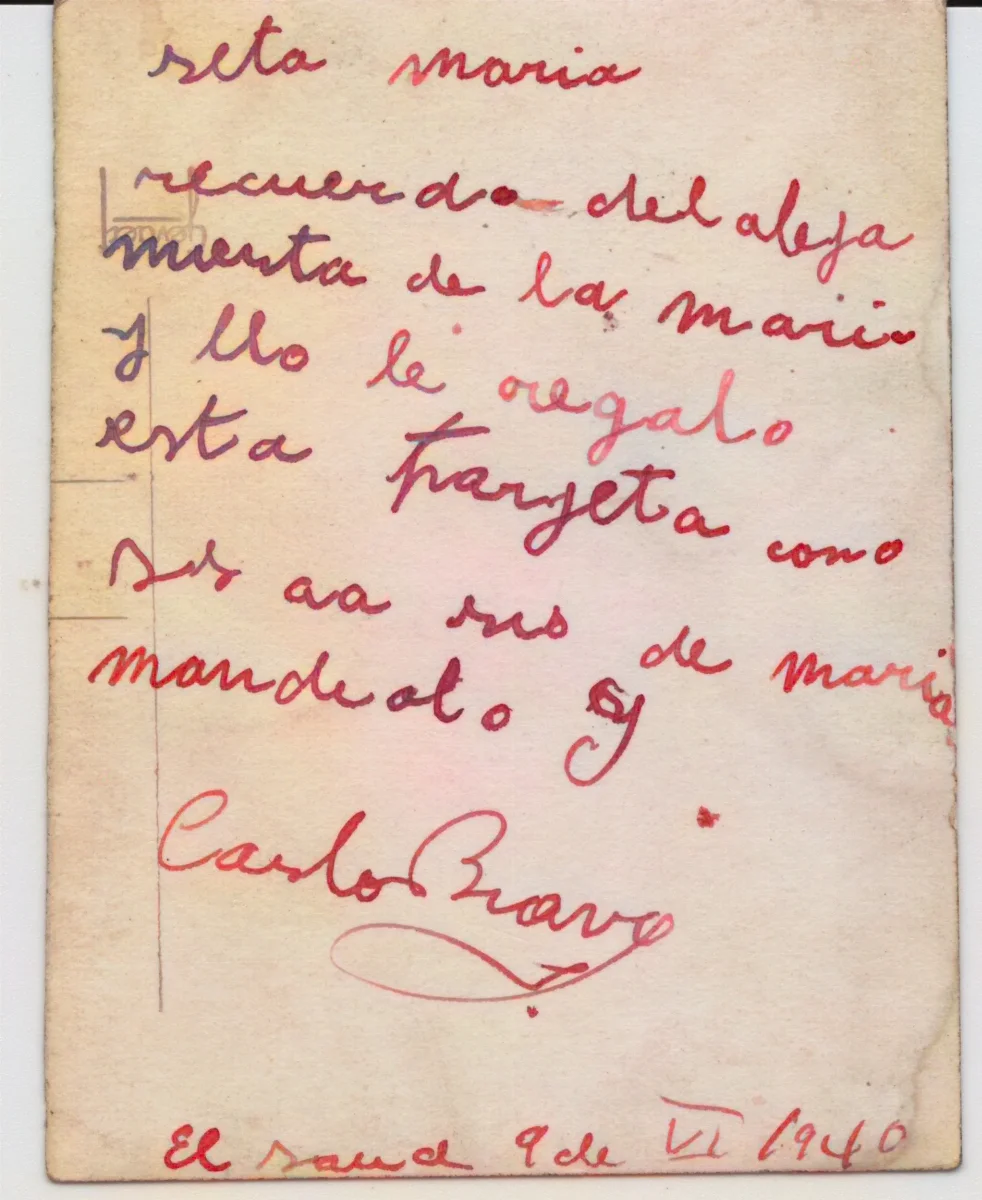 seta maria
recuerdo del aleja
mienta de la mari
y llo le regalo
esta tarjeta como
de maria
mandealo y
Carlo Bravo
El sauce 9 de VI 1940